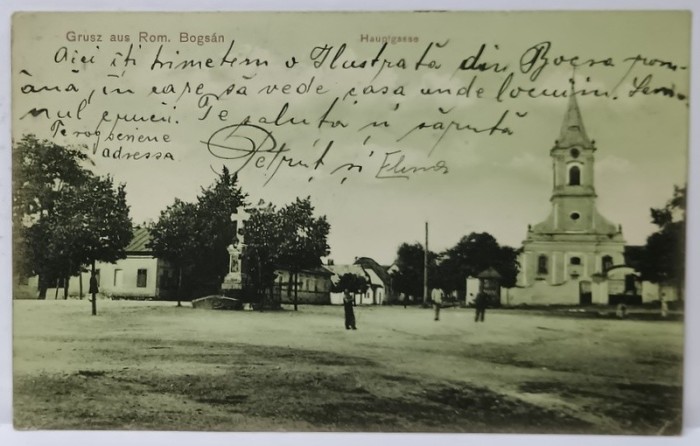 Grusz aus Rom. Bogsán
Hauptgasse
Aici îți trimetem o Ilustrată din Bocsa rom-
ână, în care să vede casa unde locuim. Sem-
nul crucii. Te saluta și săruta
Te rog scriene
adressa
Petruț și Elena